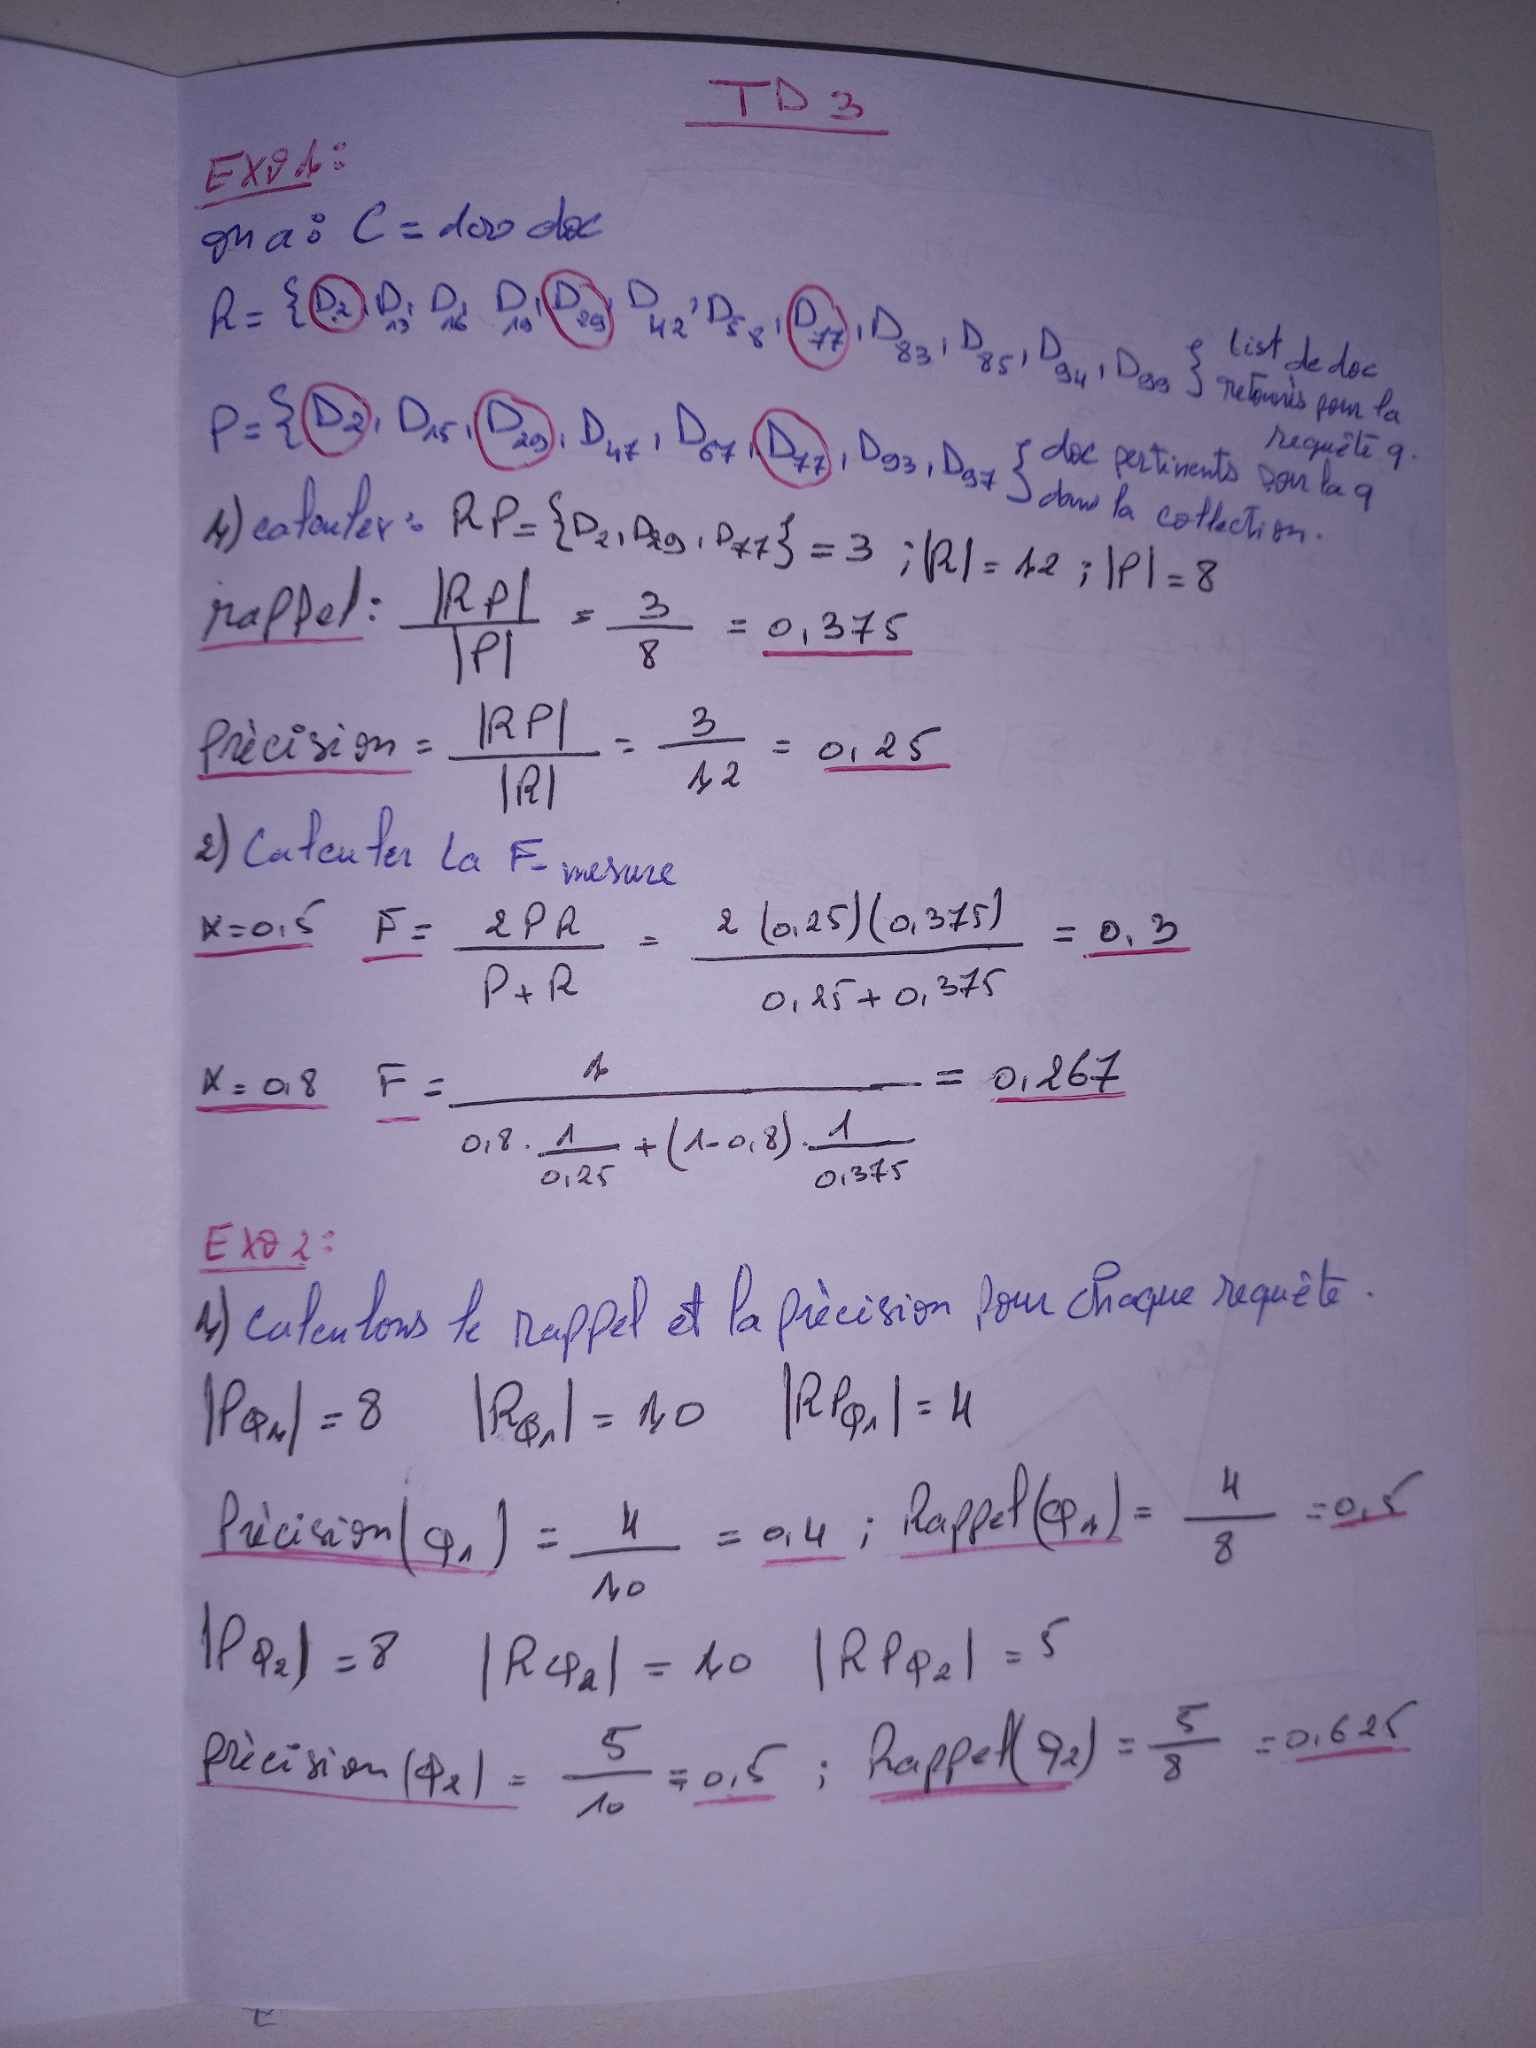 TD 3
EXO 1:
on a: C = 100 doc
R = {D2, D13, D16, D19, D29, D42, D58, D77, D83, D85, D94, D99} list de doc
retournés pour la
requête q.
P = {D2, D15, D29, D47, D67, D77, D93, D97} doc pertinents pour la q
dans la collection.
1) calculer: RP = {D2, D29, D77} = 3 ; |R| = 12 ; |P| = 8
rappel: |RP| / |P| = 3 / 8 = 0,375
Précision = |RP| / |R| = 3 / 12 = 0,25
2) Calculer La F_mesure
α=0,5 F = 2PR / P+R = 2(0,25)(0,375) / 0,25+0,375 = 0,3
α=0,8 F = 1 / 0,8 . 1/0,25 + (1-0,8) . 1/0,375 = 0,267
EXO 2:
1) Calculons le rappel et la précision pour chaque requête.
|PQ1| = 8 |RQ1| = 10 |RPQ1| = 4
Précision(Q1) = 4 / 10 = 0,4 ; Rappel(Q1) = 4 / 8 = 0,5
|PQ2| = 8 |RQ2| = 10 |RPQ2| = 5
précision(Q2) = 5 / 10 = 0,5 ; Rappel(Q2) = 5 / 8 = 0,625